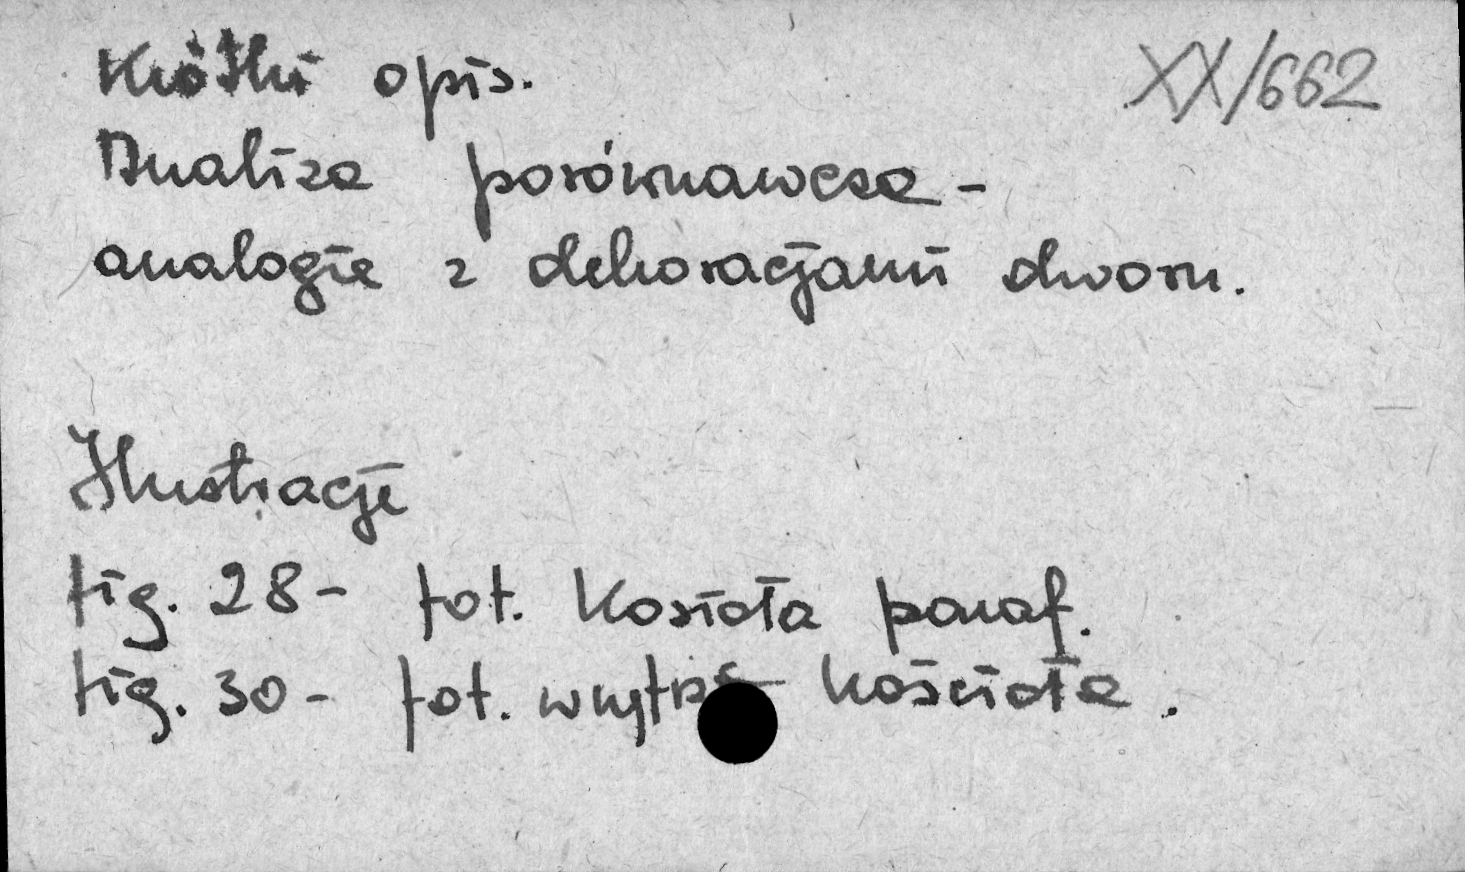 Krótki opis. XX/662
Analiza porównawcza -
analogie z dekoracjami dworu.
Ilustracje
fig. 28 - fot. Kosioła paraf.
fig. 30 - fot. kościoła.